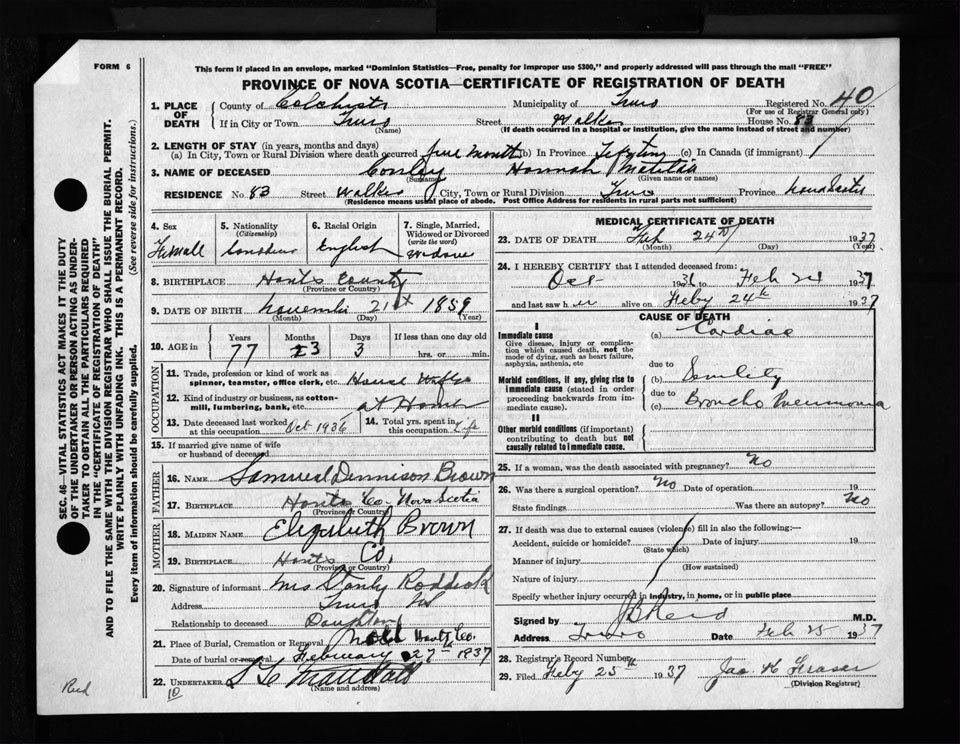 FORM 6
This form if placed in an envelope, marked "Dominion Statistics—Free, penalty for improper use $300," and properly addressed will pass through the mail "FREE"
PROVINCE OF NOVA SCOTIA—CERTIFICATE OF REGISTRATION OF DEATH
1. PLACE OF DEATH County of Colchester Municipality of Truro Registered No. 40
(For use of Registrar General only)
If in City or Town Truro Street Walker House No. 83
(Name) (If death occurred in a hospital or institution, give the name instead of street and number)
2. LENGTH OF STAY (in years, months and days)
(a) In City, Town or Rural Division where death occurred five months (b) In Province Life time (c) In Canada (if immigrant)
3. NAME OF DECEASED Conley Hannah Matilda
(Surname) (Given name or names)
RESIDENCE No. 83 Street Walker City, Town or Rural Division Truro Province Nova Scotia
(Residence means usual place of abode. Post Office Address for residents in rural parts not sufficient)
4. Sex 5. Nationality (Citizenship) 6. Racial Origin 7. Single, Married, Widowed or Divorced (write the word)
Female English Widow
8. BIRTHPLACE Hants County
(Province or Country)
9. DATE OF BIRTH November 21st 1859
(Month) (Day) (Year)
10. AGE in Years Months Days If less than one day old
77 3 3 hrs. or min.
OCCUPATION
11. Trade, profession or kind of work as spinner, teamster, office clerk, etc. House Wife
12. Kind of industry or business, as cotton-mill, lumbering, bank, etc. at Home
13. Date deceased last worked at this occupation Oct 1936 14. Total yrs. spent in this occupation Life
15. If married give name of wife or husband of deceased
FATHER
16. NAME Samuel Dennison Brown
17. BIRTHPLACE Hants Co. Nova Scotia
(Province or Country)
MOTHER
18. MAIDEN NAME Elizabeth Brown
19. BIRTHPLACE Hants Co.
(Province or Country)
20. Signature of informant Mrs Stanly Roddick
Address Truro NS
Relationship to deceased Daughter
21. Place of Burial, Cremation or Removal Noel Hants Co.
Date of burial or removal February 27th 1937
22. UNDERTAKER
(Name and address)
MEDICAL CERTIFICATE OF DEATH
23. DATE OF DEATH Feb 24th 1937
(Month) (Day) (Year)
24. I HEREBY CERTIFY that I attended deceased from:
Oct 1936 to Feb 24 1937
and last saw her alive on Feby 24th 1937
CAUSE OF DEATH
I
Immediate cause
Give disease, injury or complication which caused death, not the mode of dying, such as heart failure, asphyxia, asthenia, etc
(a) Cardiac
due to
Morbid conditions, if any, giving rise to immediate cause (stated in order proceeding backwards from immediate cause).
(b) Senility
due to
(c) Broncho Pneumonia
II
Other morbid conditions (if important) contributing to death but not causally related to immediate cause.
25. If a woman, was the death associated with pregnancy? No
26. Was there a surgical operation? No Date of operation 19
State findings Was there an autopsy? No
27. If death was due to external causes (violence) fill in also the following:—
Accident, suicide or homicide? Date of injury 19
(State which)
Manner of injury
(How sustained)
Nature of injury
Specify whether injury occurred in industry, in home, or in public place
Signed by M.D.
Address Truro Date Feb 25 1937
28. Registrar's Record Number
29. Filed Feby 25th 1937 Jas H Fraser
(Division Registrar)
SEC. 46—VITAL STATISTICS ACT MAKES IT THE DUTY
OF THE UNDERTAKER OR PERSON ACTING AS UNDERTAKER TO OBTAIN ALL THE PARTICULARS REQUIRED
IN THE "CERTIFICATE OF REGISTRATION OF DEATH"
AND TO FILE THE SAME WITH THE DIVISION REGISTRAR WHO SHALL ISSUE THE BURIAL PERMIT.
WRITE PLAINLY WITH UNFADING INK. THIS IS A PERMANENT RECORD.
Every item of information should be carefully supplied. (See reverse side for instructions.)
10